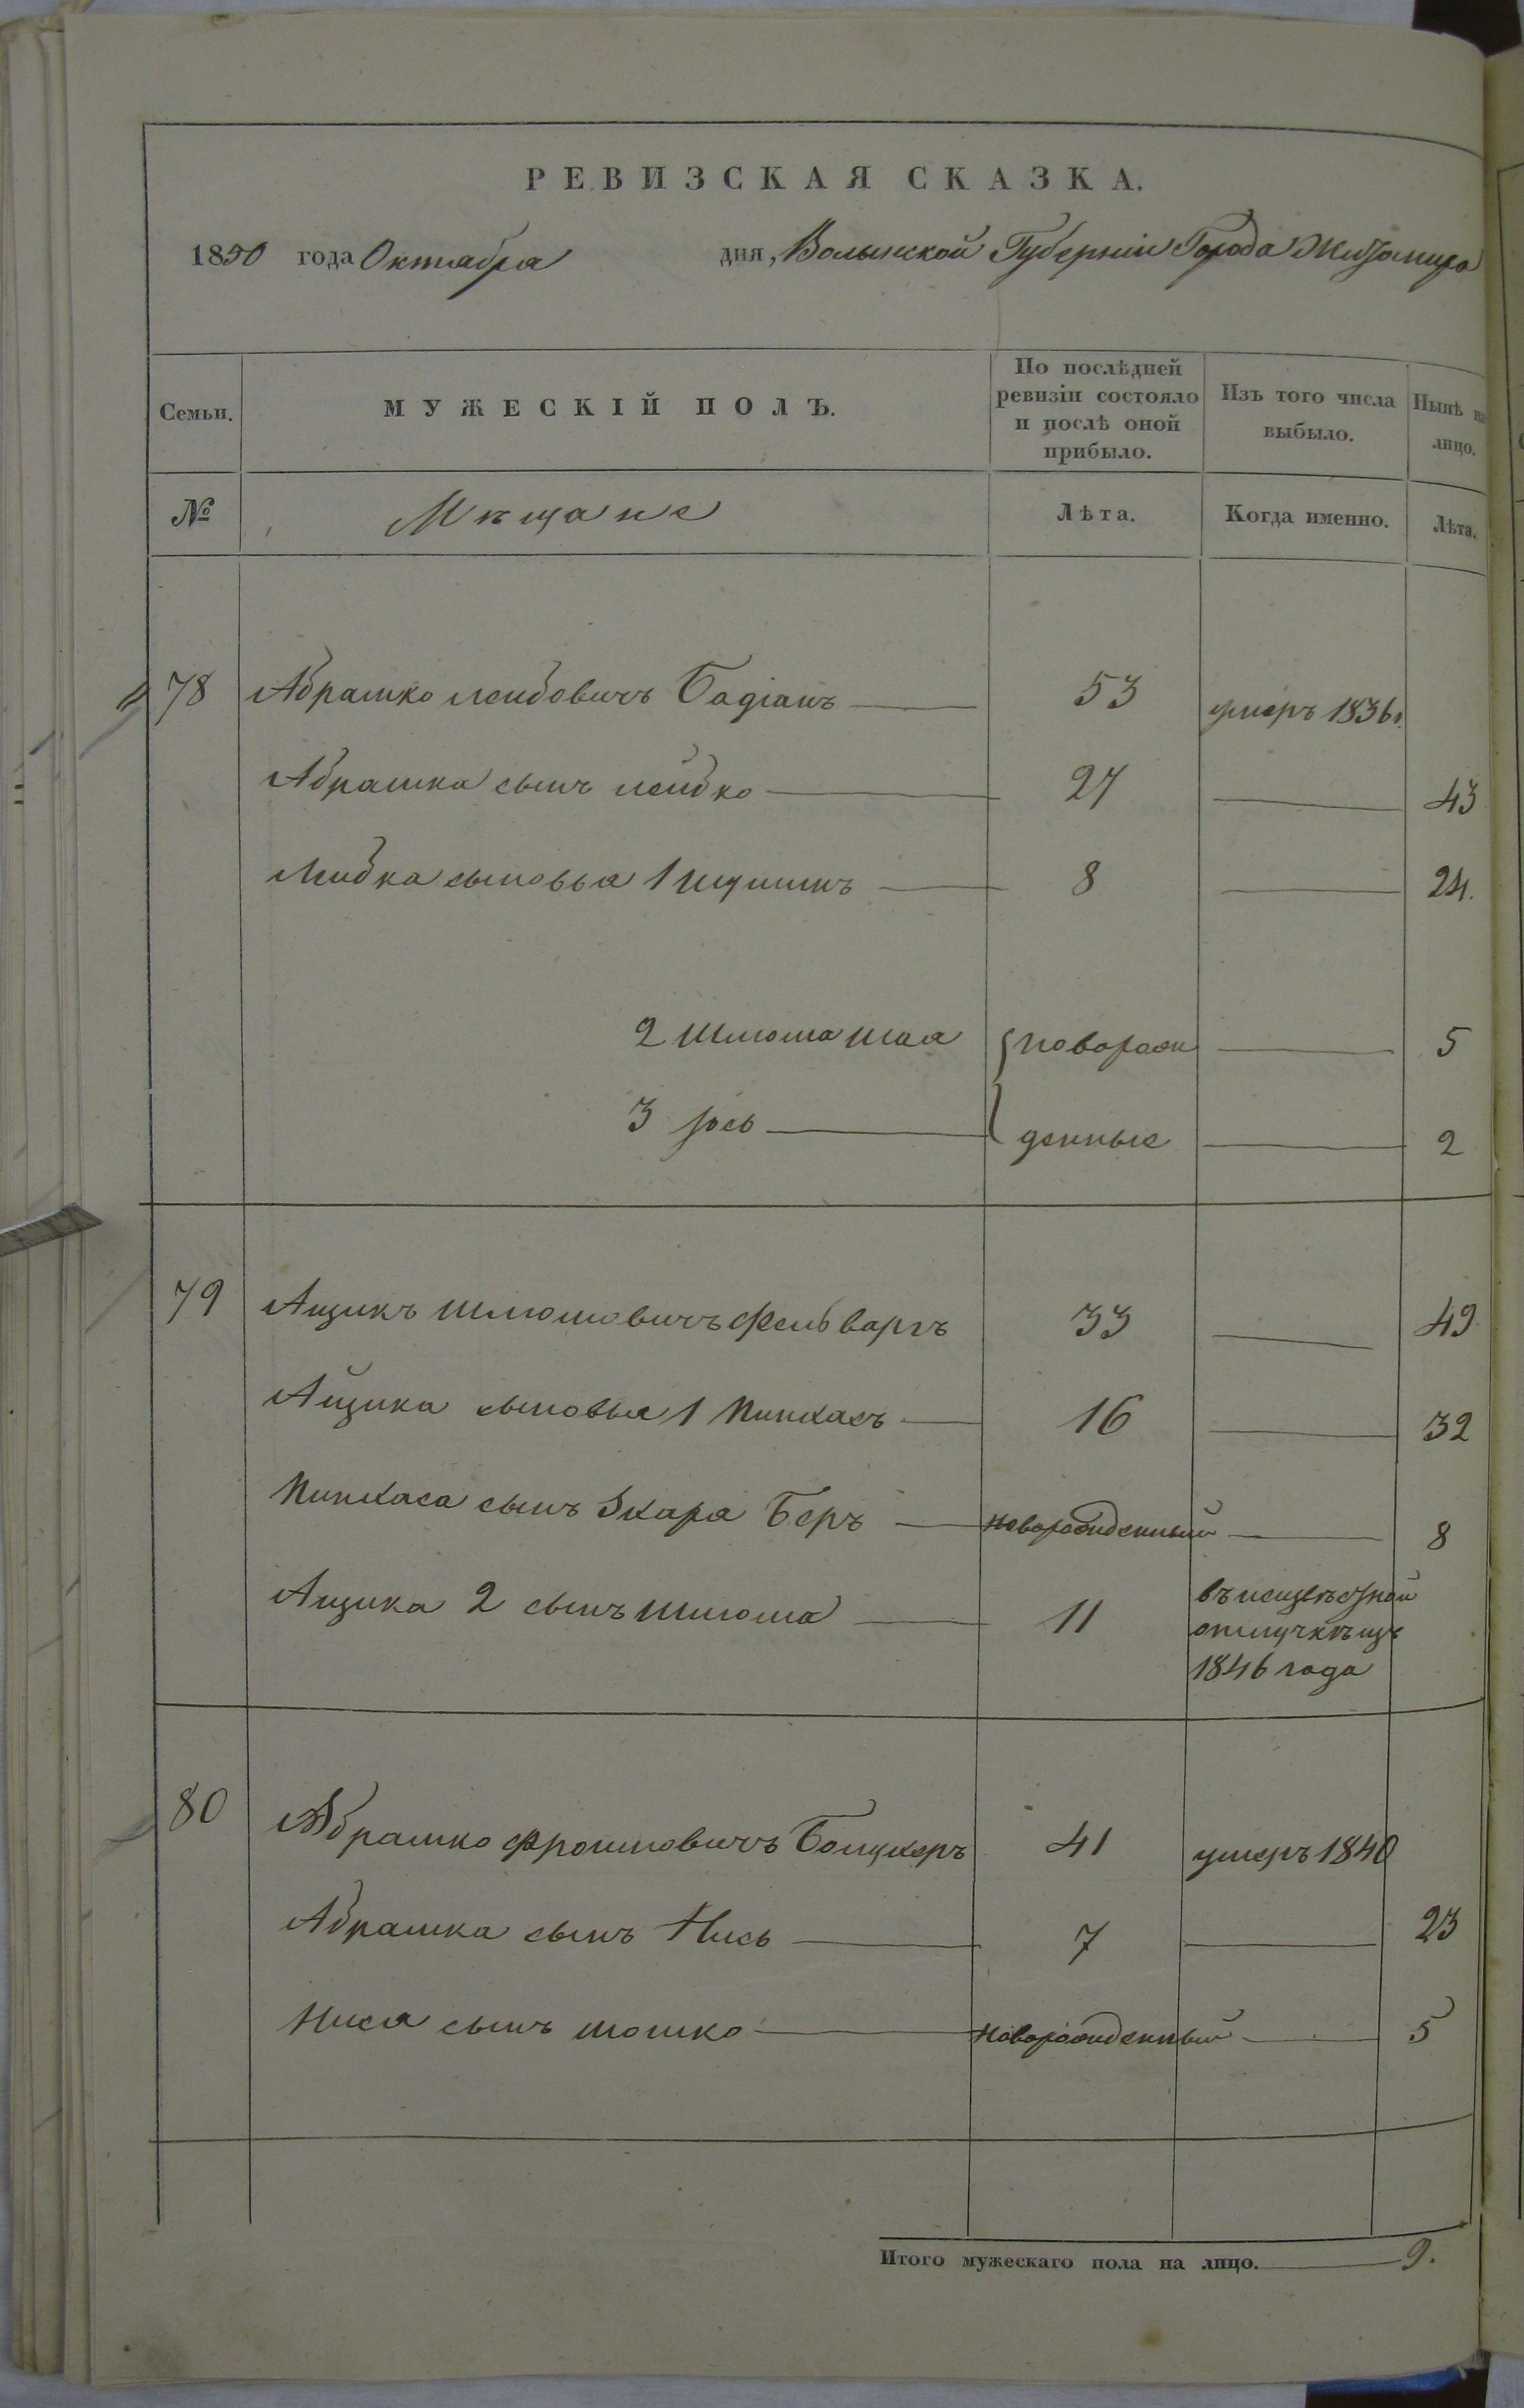 РЕВИЗСКАЯ СКАЗКА.
1850 года Октября дня, Волынской Губернии Города Житомира
Семьи. МУЖЕСКІЙ ПОЛЪ. По послѣдней ревизіи состояло и послѣ оной прибыло. Изъ того числа выбыло. Нынѣ на лицо.
№ Мѣщане Лѣта. Когда именно. Лѣта.
78 Абрашко Лейбовичъ Бадіанъ 53 умеръ 1836 г.
Абрашка сынъ Лейбко 27 43
Лейбка сыновья 1 8 24.
2 Шлiома Шая новорож 5
3 Іось денные 2
79 Айзикъ Шлiомовичъ Фельваргъ 33 49
Айзика сыновья 1 Пинхасъ 16 32
Пинхаса сынъ Беръ новорожденный 8
Айзика 2 сынъ Шлiома 11 въ неизвѣстной
отлучкѣ изъ
1846 года
80 Абрашко Фроимовичъ 41 умеръ 1840
Абрашка сынъ Нись 7 23
Нися сынъ Мошко новорожденный 5
Итого мужескаго пола на лицо. 9.